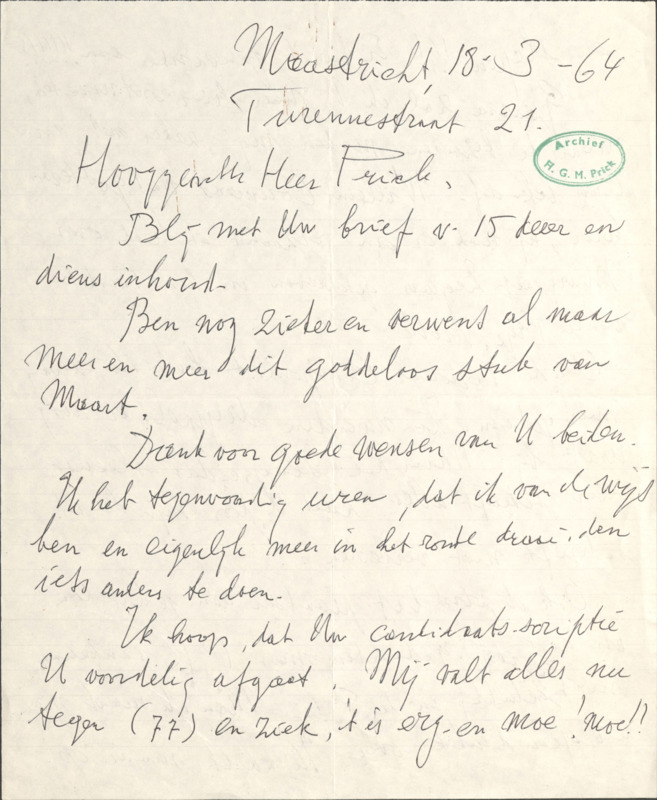 Maastricht, 18-3-64
Turennestraat 21.
Archief
H. G. M. Prick
Hooggeachte Heer Prick,
Blij met Uw brief v. 15 dezer en
diens inhoud.
Ben nog zieker en verwens al maar
meer en meer dit goddeloos stuk van
Maart.
Dank voor goede wensen van U beiden.
Ik heb tegenwoordig uren, dat ik van de wijs
ben en eigenlijk meer in het ronde draai, dan
iets anders te doen.
Ik hoop, dat Uw candidaats-scriptie
U voordelig afgaat. Mij valt alles nu
tegen (77) en ziek, 't is erg en moe! moe!!